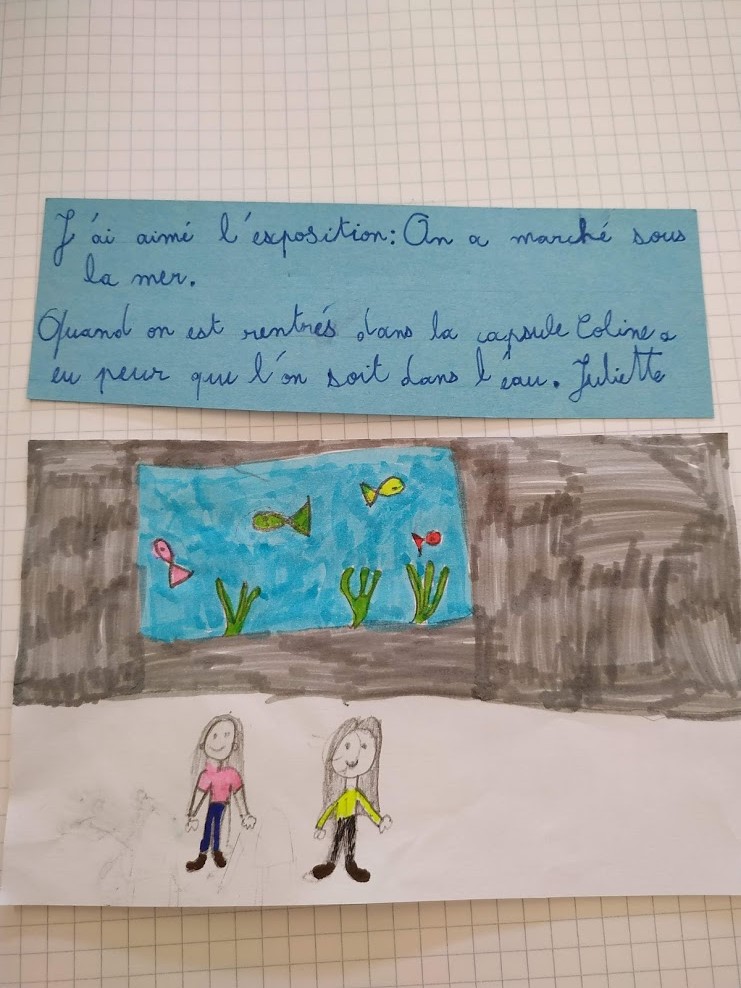 J'ai aimé l'exposition: On a marché sous
la mer.
Quand on est rentrés dans la capsule Coline a
eu peur que l'on soit dans l'eau. Juliette